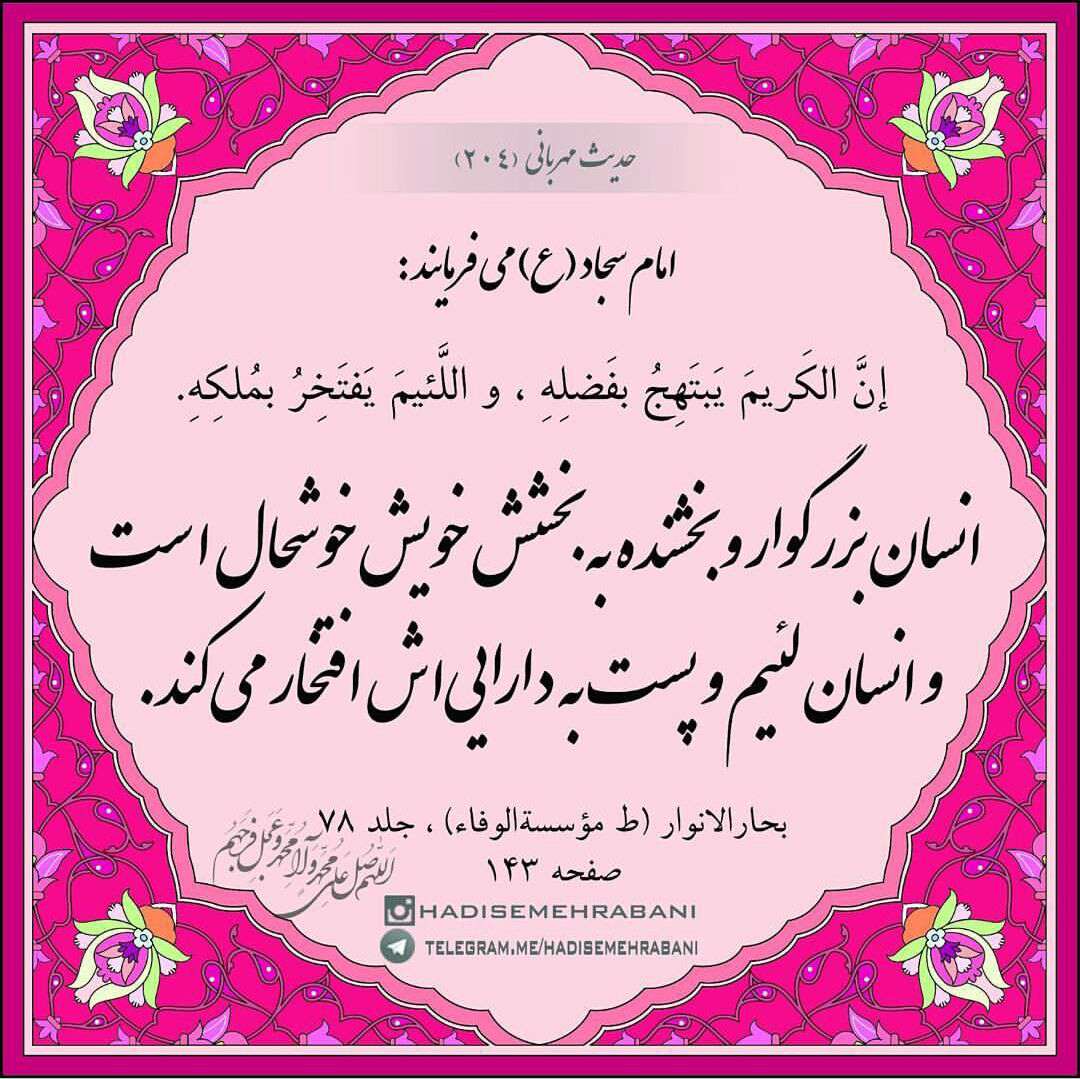 حدیث مهربانی (۲۰٤)
امام سجاد (ع) می فرمایند:
إنَّ الكَريمَ يَبتَهِجُ بفَضلِهِ ، و اللَّئيمَ يَفتَخِرُ بمُلكِهِ.
انسان بزرگوار و بخشنده به بخشش خویش خوشحال است
و انسان لئیم و پست به دارایی اش افتخار می کند.
بحارالانوار (ط مؤسسةالوفاء) ، جلد ۷۸
صفحه ۱۴۳
اللهم صل علی محمد وآل محمد وعجل فرجهم
HADISEMEHRABANI
TELEGRAM.ME/HADISEMEHRABANI